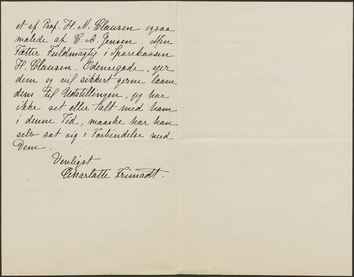 et af Prof. H. N. Clausen ogsaa
malede af C. A. Jensen. Min
Fætter Fuldmægtig i Sparekassen
H. Clausen. Odensegade, ejer
dem og vil sikkert gerne laane
dem til Udstillingen, jeg har
ikke set eller talt med ham
i denne Tid, maaske har han
selv sat sig i Forbindelse med
Dem.
Venligst
Charlotte Trimodt.